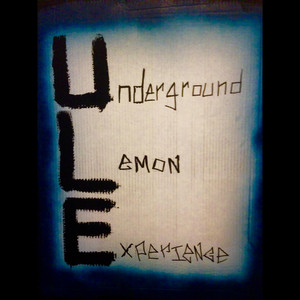 Underground
Lemon
Experience